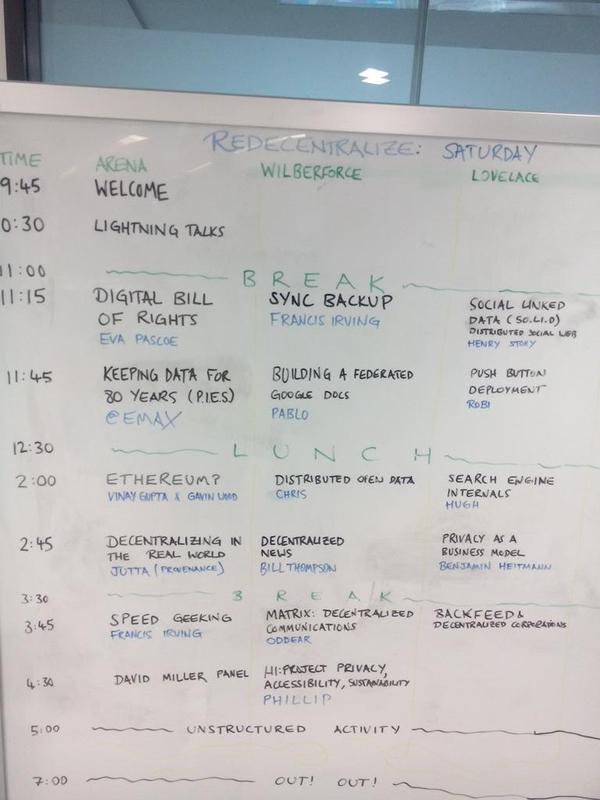 REDECENTRALIZE: SATURDAY
TIME ARENA WILBERFORCE LOVELACE
9:45 WELCOME
0:30 LIGHTNING TALKS
11:00 BREAK
11:15 DIGITAL BILL OF RIGHTS EVA PASCOE
SYNC BACKUP FRANCIS IRVING
SOCIAL LINKED DATA (SO.LI.D) DISTRIBUTED SOCIAL WEB HENRY STORY
11:45 KEEPING DATA FOR 80 YEARS (P.I.E.S) @EMAX
BUILDING A FEDERATED GOOGLE DOCS PABLO
PUSH BUTTON DEPLOYMENT ROBI
12:30 LUNCH
2:00 ETHEREUM? VINAY GUPTA & GAVIN WOOD
DISTRIBUTED OPEN DATA CHRIS
SEARCH ENGINE INTERNALS HUGH
2:45 DECENTRALIZING IN THE REAL WORLD JUTTA (PROVENANCE)
DECENTRALIZED NEWS BILL THOMPSON
PRIVACY AS A BUSINESS MODEL BENJAMIN HEITMANN
3:30 BREAK
3:45 SPEED GEEKING FRANCIS IRVING
MATRIX: DECENTRALIZED COMMUNICATIONS ODDEAR
BACKFEED & DECENTRALIZED CORPORATIONS
4:30 DAVID MILLER PANEL
HI:PROJECT PRIVACY, ACCESSIBILITY, SUSTAINABILITY PHILLIP
5:00 UNSTRUCTURED ACTIVITY
7:00 OUT! OUT!